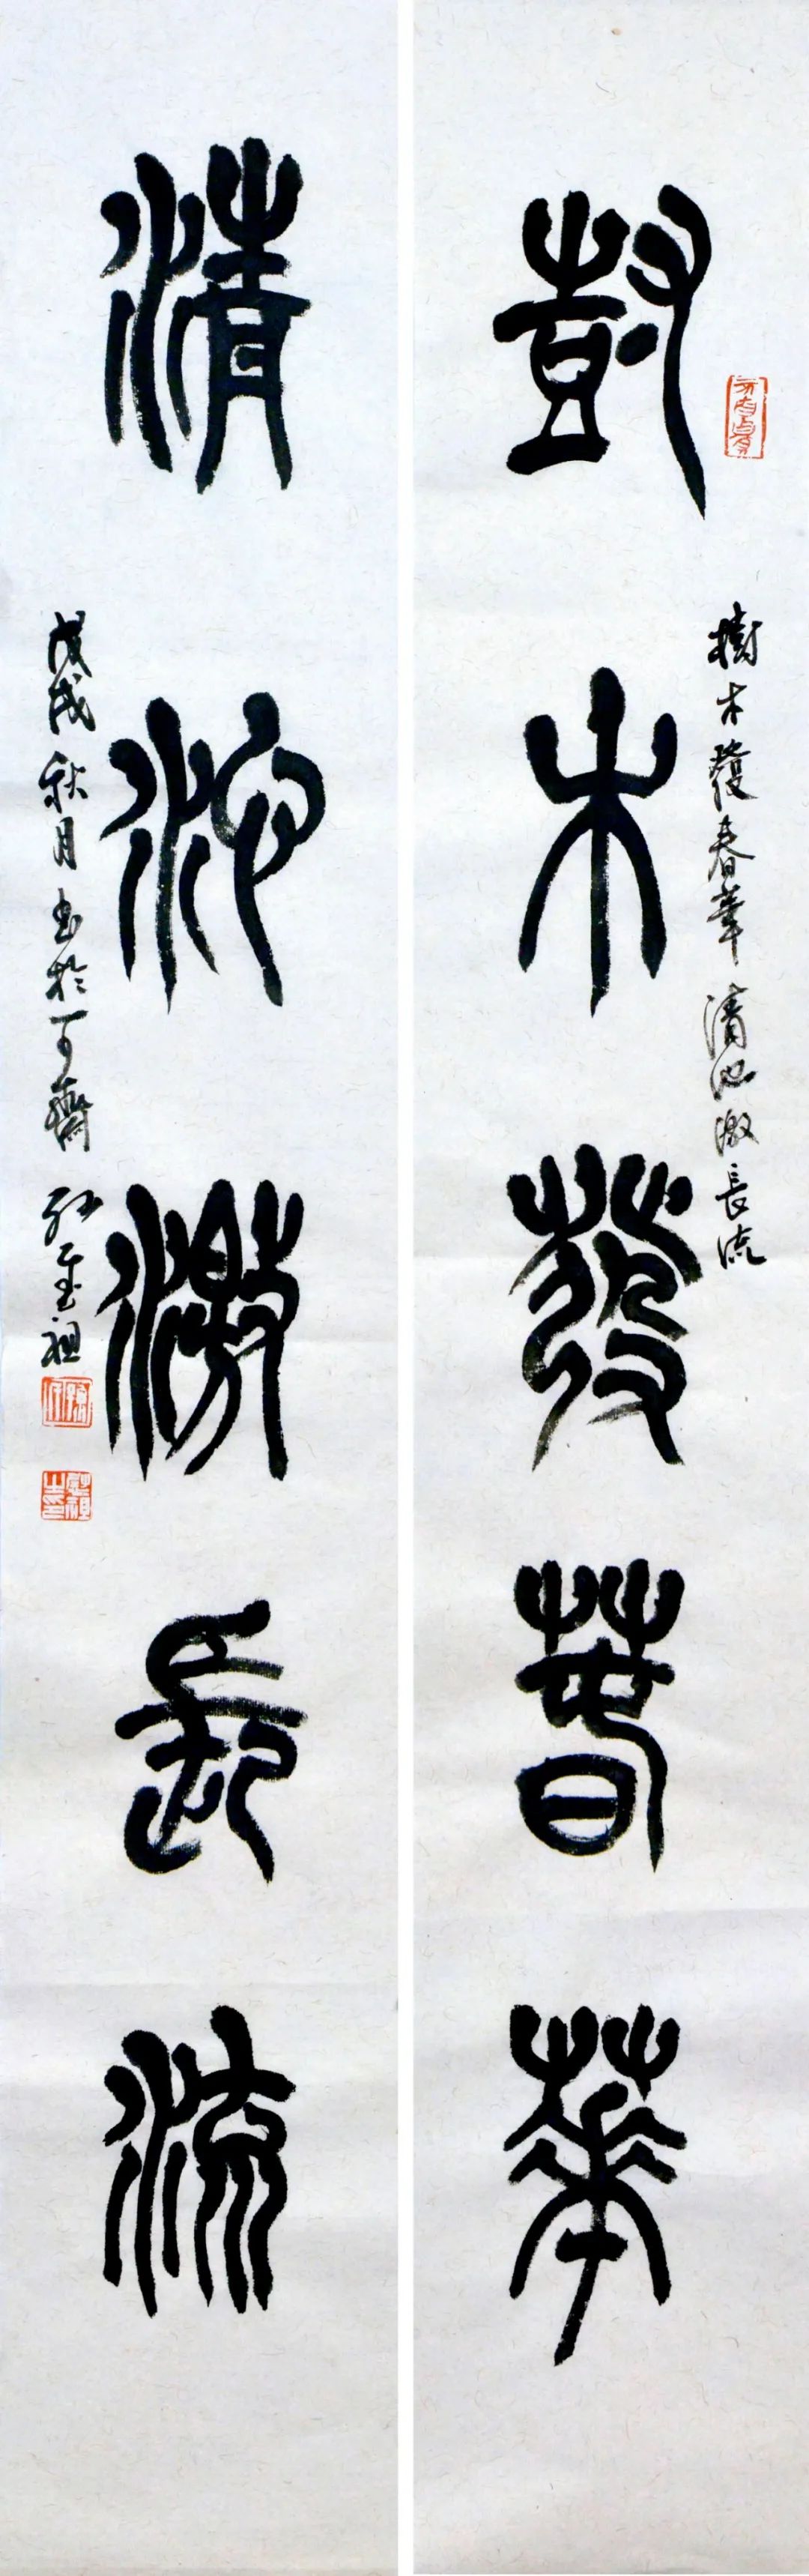 尌木發萅華
樹木發春華 清池激長流
清池激長流
戊戌秋月書於一可齋